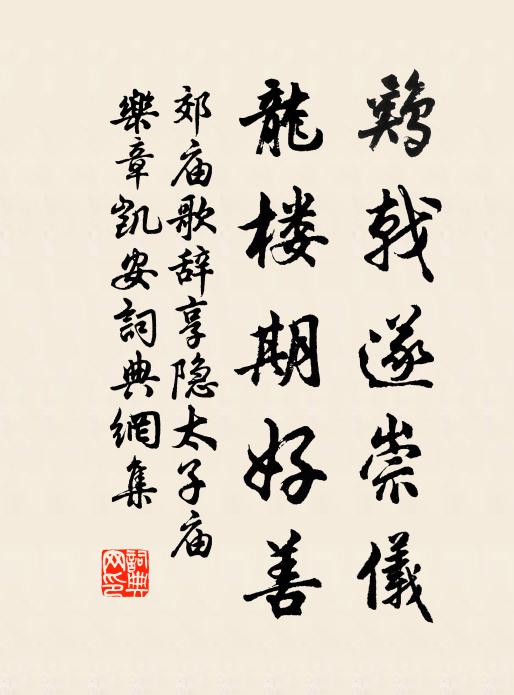 鷄戟遂崇儀
龍楼期好善
郊庙歌辞享隐太子庙
樂章凯安詞典網集
詞典网印